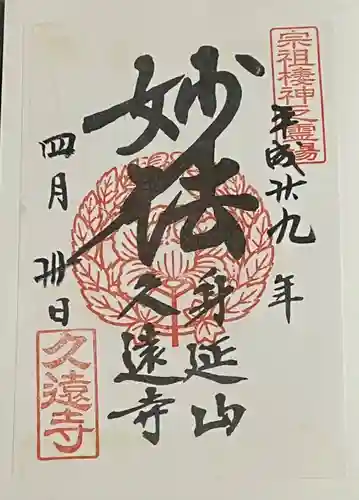 宗祖棲神之霊場
平成廿九年
妙法
身延山
久遠寺
四月卅日
久遠寺